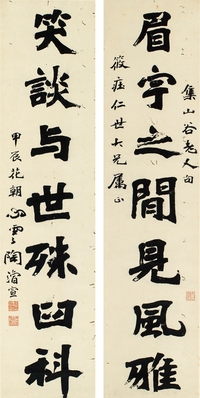 集山谷老人句
眉宇之間見風雅
筱庄仁世大兄属正
笑談与世殊臼科
甲辰花朝心雲陶濬宣